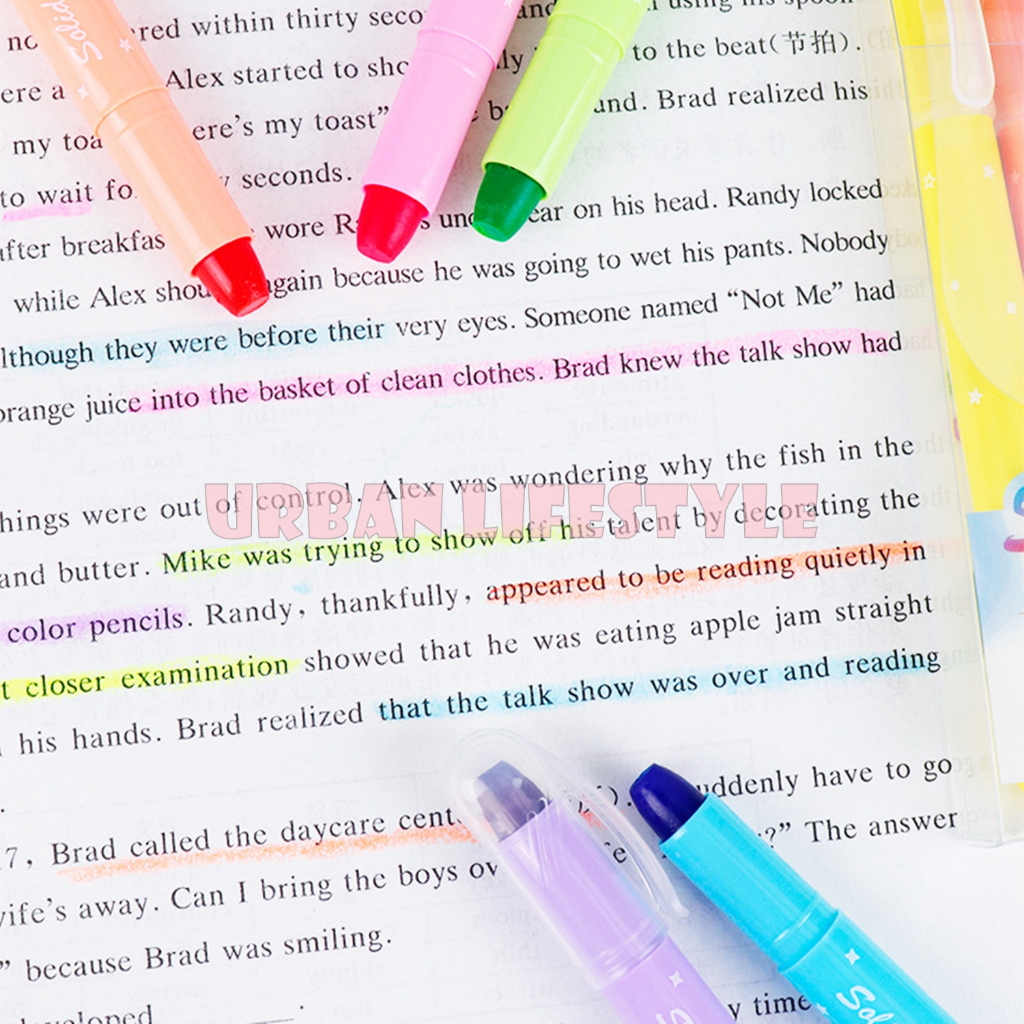 Solid
within thirty
using his
Alex started to
to the beat(节拍).
ere's my toast"
Brad realized his
my
to wait
seconds.
wore
ear on his head. Randy locked
after
while Alex
again because he was going to wet his pants. Nobody
lthough they were before their very eyes. Someone named “Not Me” had
orange juice into the basket of clean clothes. Brad knew the talk show had
hings were out of control. Alex was wondering why the fish in the
URBAN LIFESTYLE
and butter. Mike was trying to show off his talent by decorating the
color pencils. Randy, thankfully, appeared to be reading quietly in
t closer examination showed that he was eating apple jam straight
his hands. Brad realized that the talk show was over and reading
7, Brad called the daycare
uddenly have to go
vife's away. Can I bring the boys
?” The answer
” because Brad was smiling.
Sol
y time